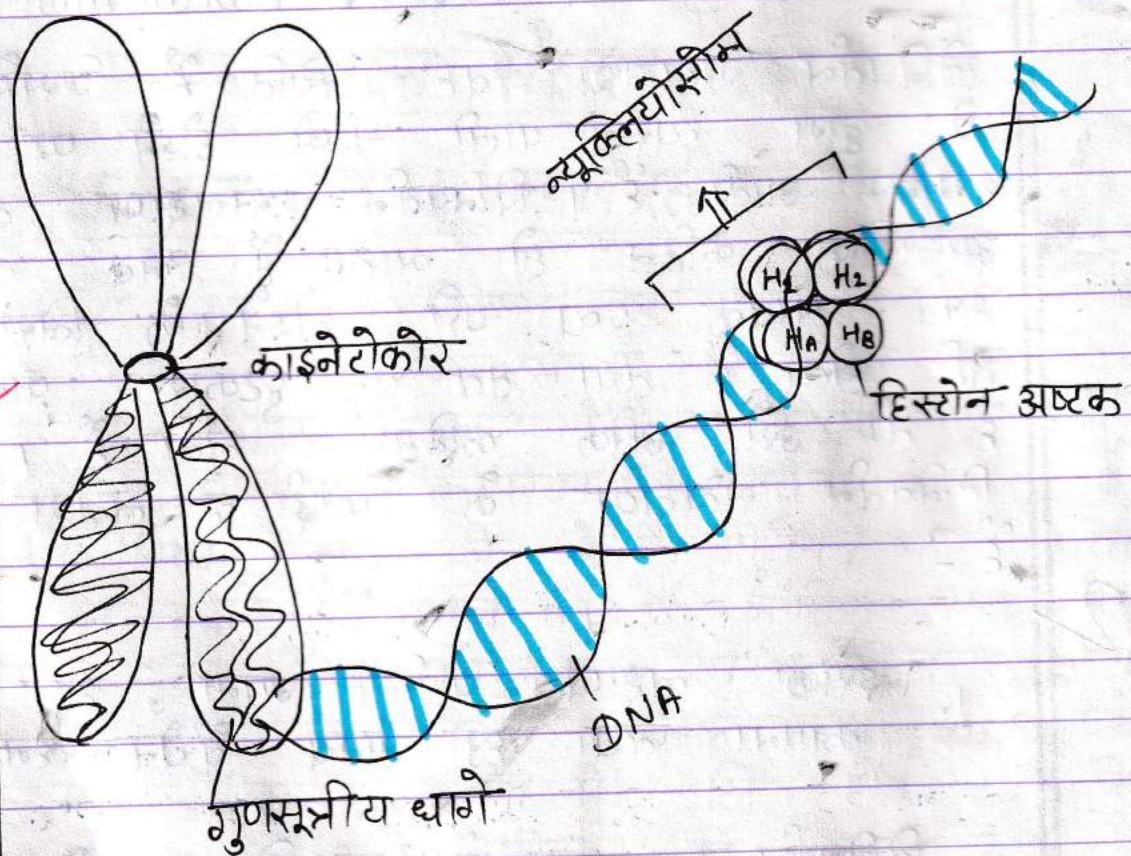 न्यूक्लियोसोम
H1 H2
HA HB
काइनेटोकोर
हिस्टोन अष्टक
DNA
गुणसूत्रीय धागे